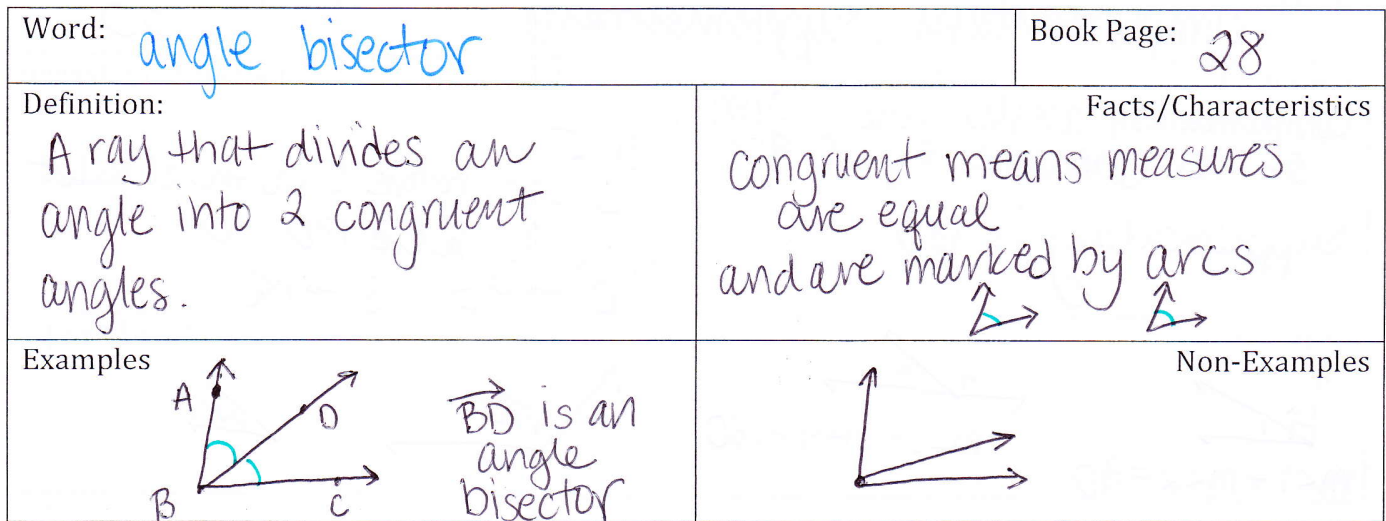 Word: angle bisector
Book Page: 28
Definition:
A ray that divides an
angle into 2 congruent
angles.
Facts/Characteristics
congruent means measures
are equal
and are marked by arcs
Examples
A
D
B
C
BD is an
angle
bisector
Non-Examples